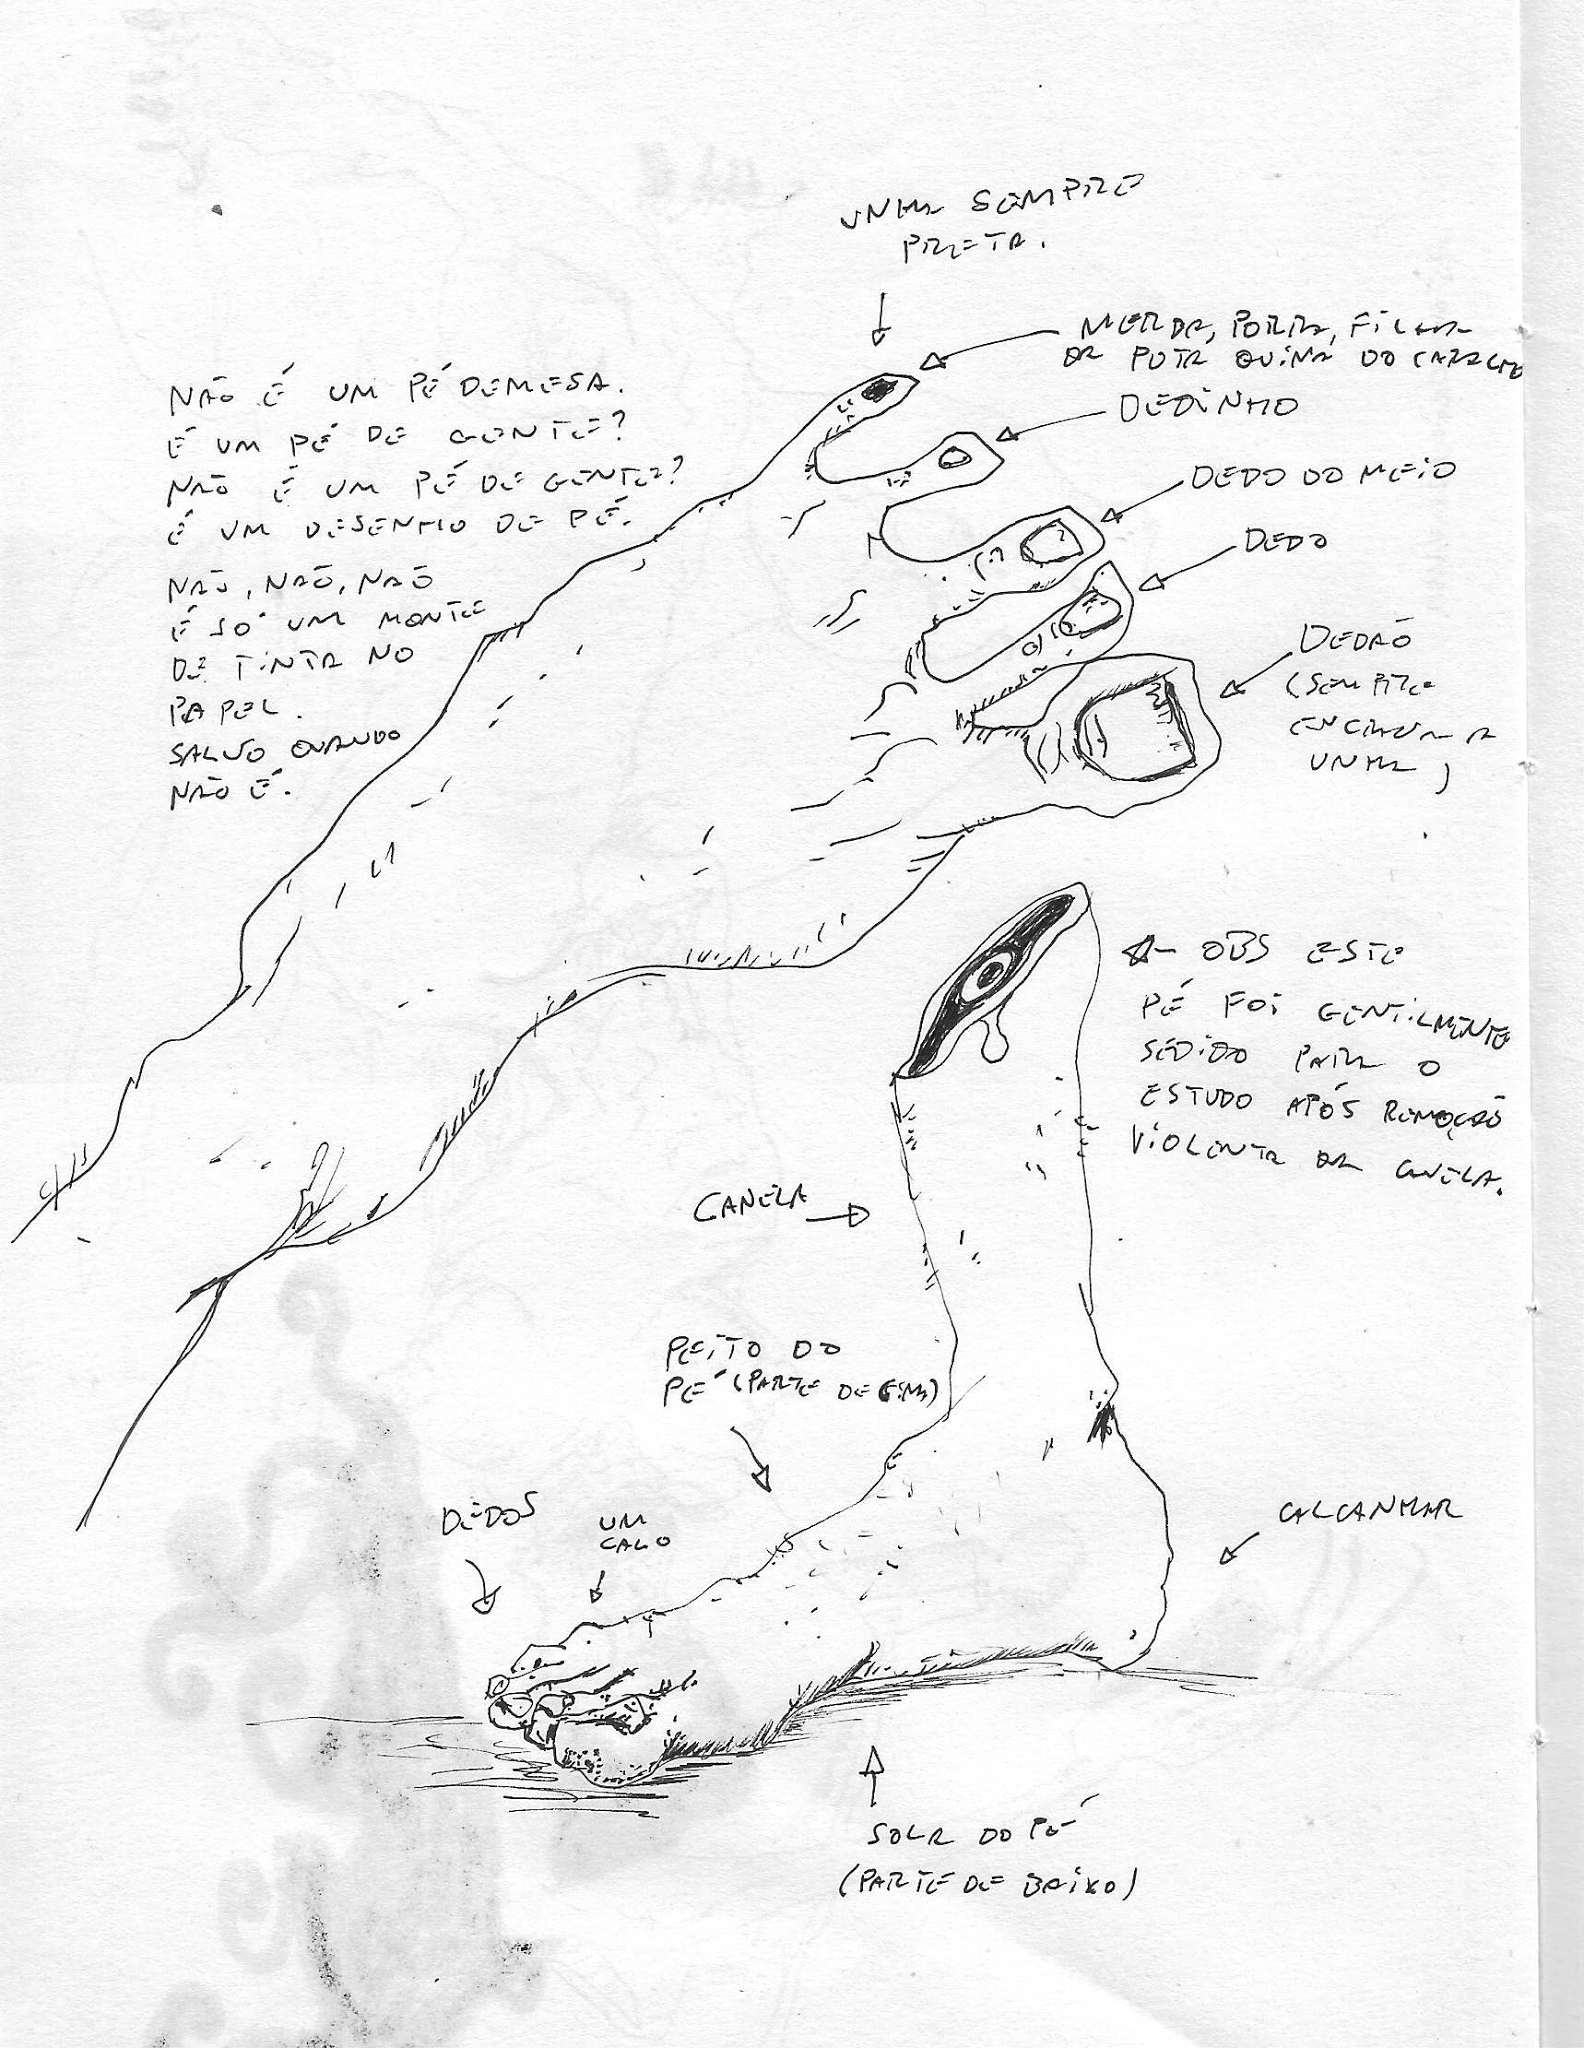 UNHA SEMPRE
PRETA.
MERDA, PORRA, FILHA
DA PUTA QUINA DO CARALHO
DEDINHO
DEDO DO MEIO
DEDO
DEDÃO
(SEMPRE
ENCRAVA A
UNHA)
NÃO É UM PÉ DE MESA.
É UM PÉ DE GENTE?
NÃO É UM PÉ DE GENTE?
É UM DESENHO DE PÉ.
NÃO, NÃO, NÃO
É SÓ UM MONTE
DE TINTA NO
PAPEL.
SALVO QUANDO
NÃO É.
OBS ESTE
PÉ FOI GENTILMENTE
SEDIDO PARA O
ESTUDO APÓS REMOÇÃO
VIOLENTA DA CANELA.
CANELA
PEITO DO
PÉ (PARTE DE CIMA)
DEDOS
UM
CALO
CALCANHAR
SOLA DO PÉ
(PARTE DE BAIXO)